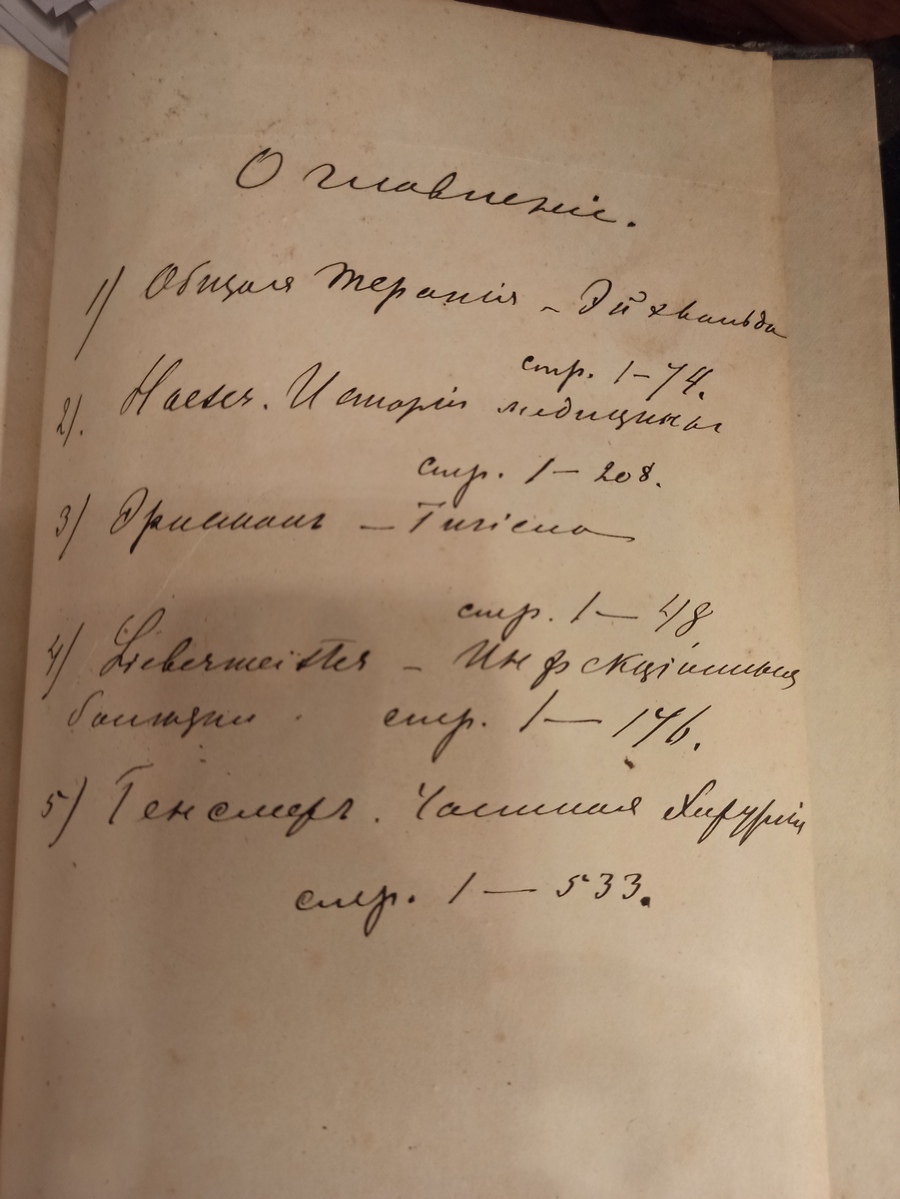 Оглавленіе.
1) Общая терапія – Эйхвальда
стр. 1–74.
2). Haeser. Исторія медицины
стр. 1–208.
3) Эрисманъ – Гигіена
стр. 1–48
4) Liebermeister – Инфекціонныя
болѣзни. стр. 1–176.
5) Генсмеръ. Частная Хирургія
стр. 1–533.